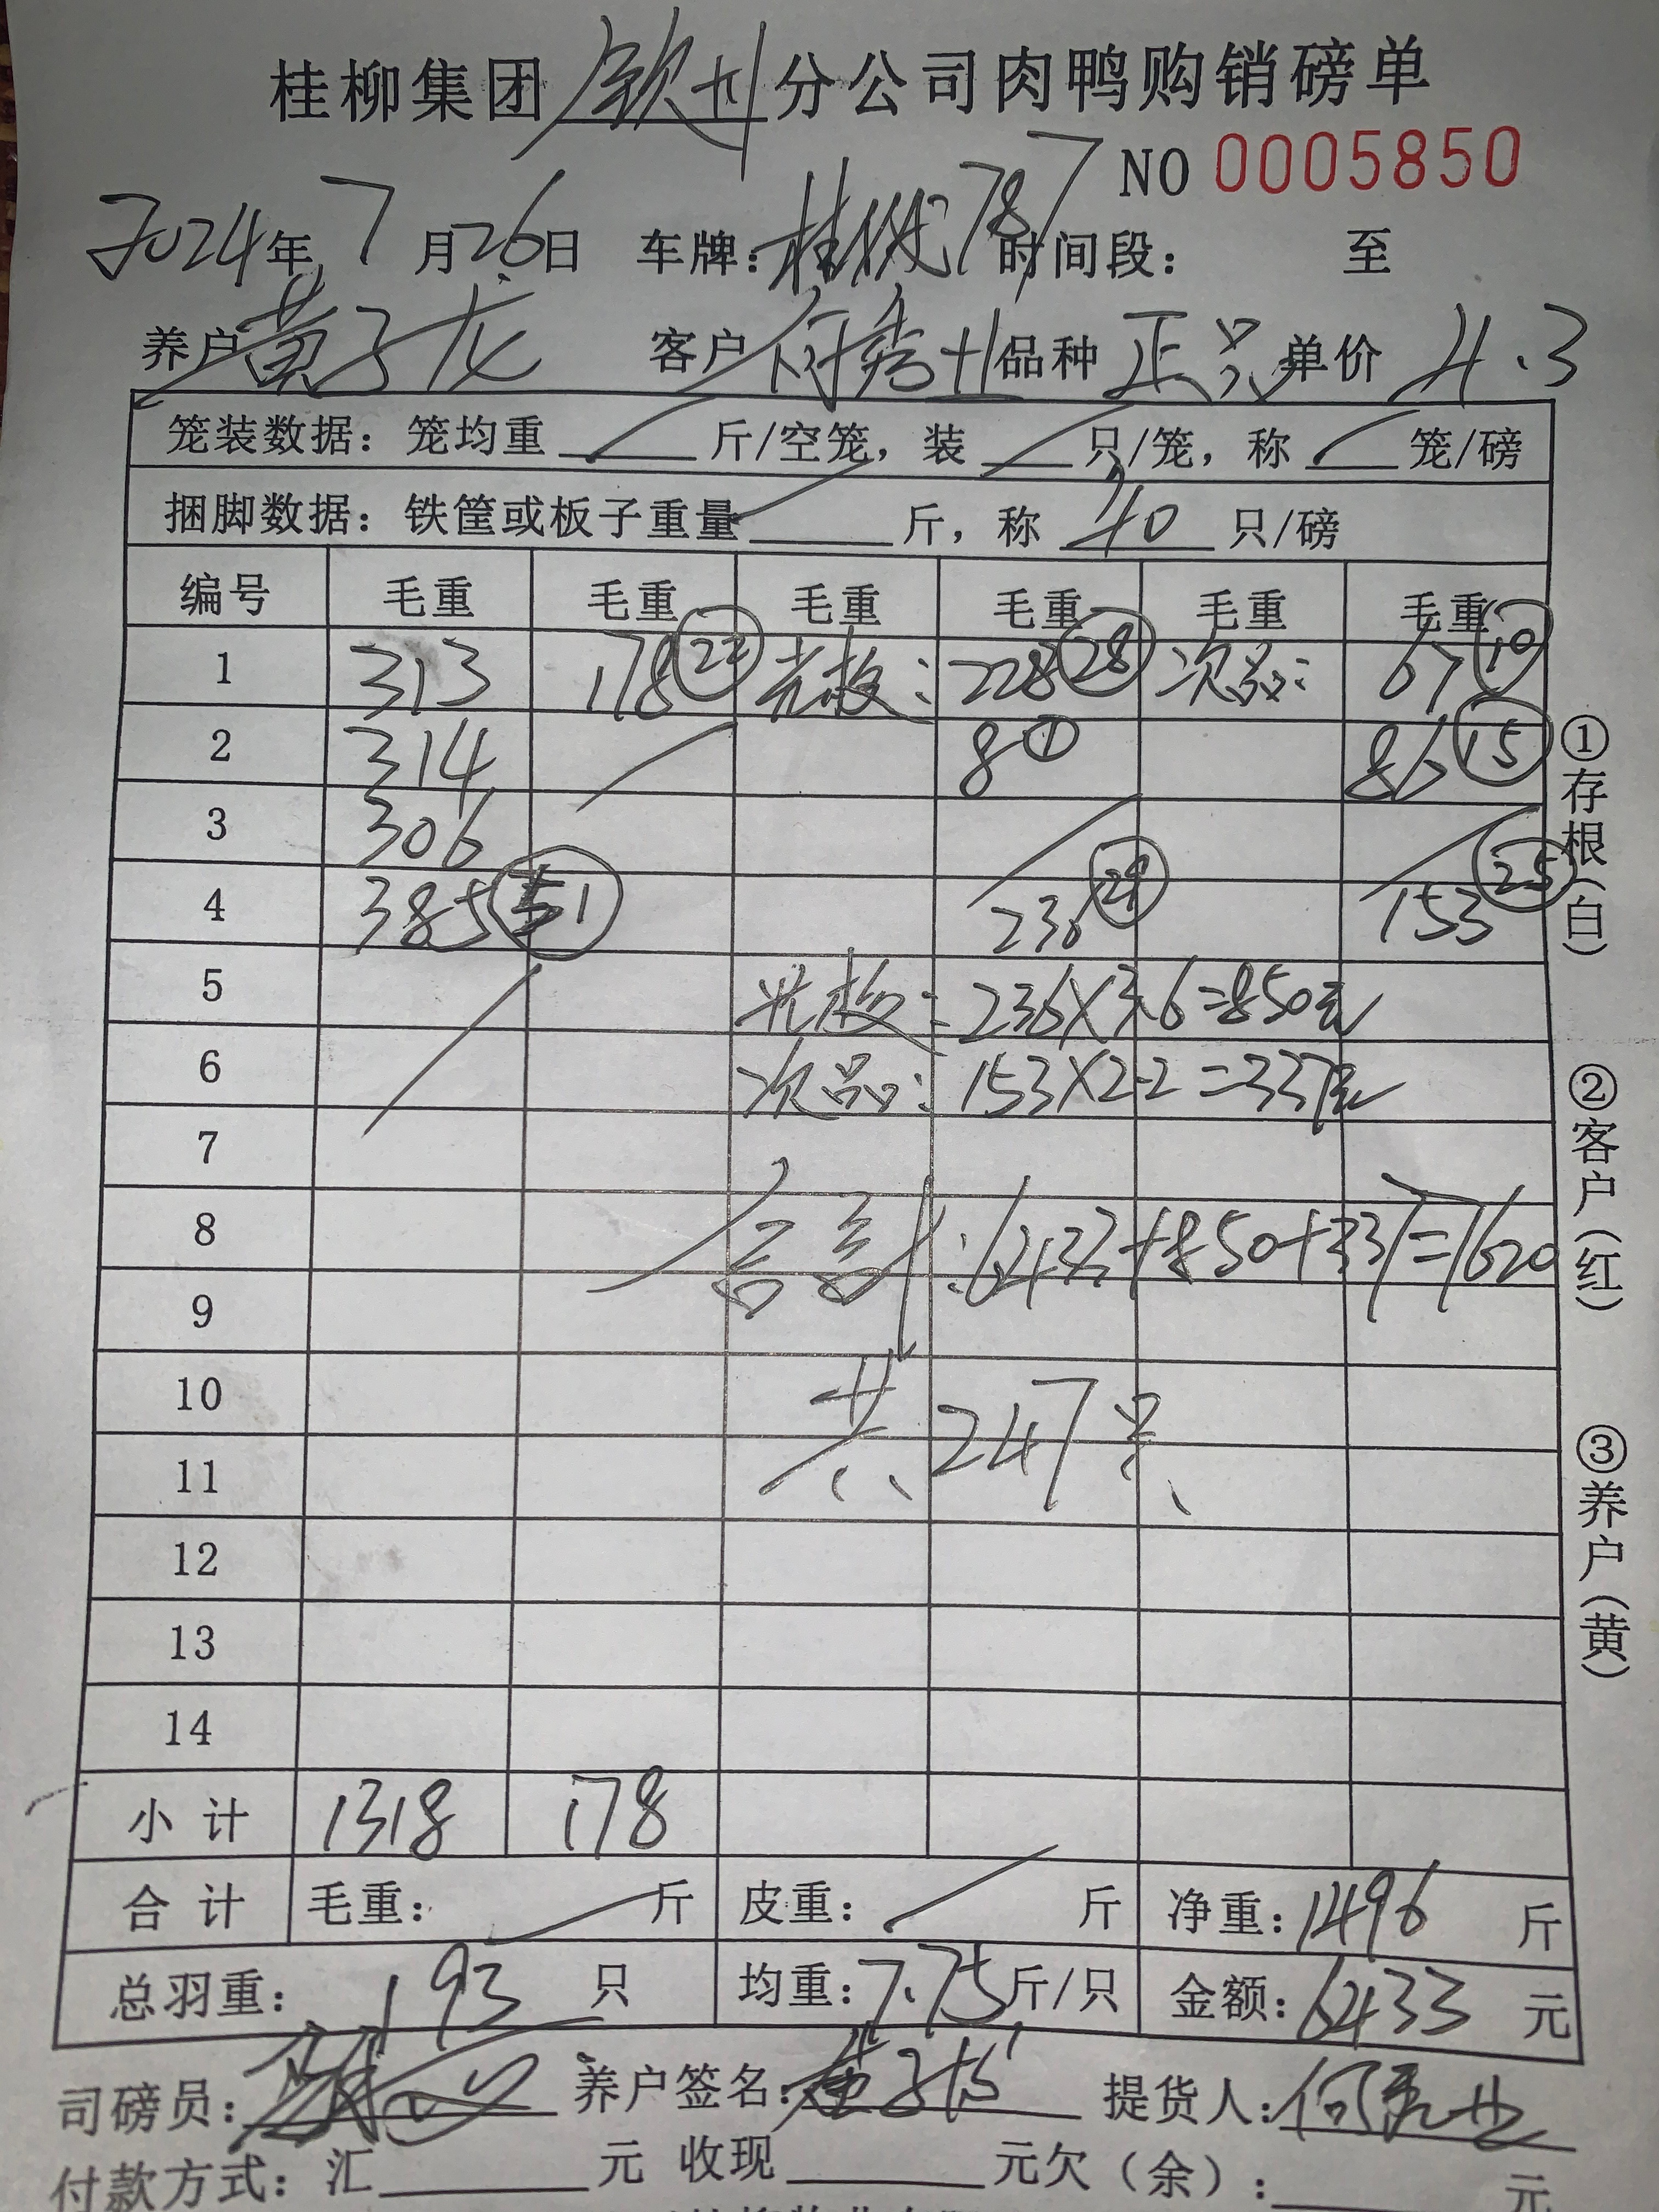 桂柳集团钦州分公司肉鸭购销磅单
NO 0005850
2024年7月26日 车牌: 787 时间段: 至
养户 黄子龙 客户 品种 正只 单价 4.3
笼装数据: 笼均重 斤/空笼, 装 只/笼, 称 笼/磅
捆脚数据: 铁筐或板子重量 斤, 称 40 只/磅
编号 毛重 毛重 毛重 毛重 毛重 毛重
1 313 178 22 光板: 228 28 次品: 67 10
2 314 8 1 86 15
3 306
4 385 51 236 29 153 25
5 光板: 236×3.6=850元
6 次品: 153×2.2=337元
7
8 合计: 6433+850+337=7620
9
10 共247只
11
12
13
14
小计 1318 178
合计 毛重: 斤 皮重: 斤 净重: 1496 斤
总羽重: 193 只 均重: 7.75斤/只 金额: 6433 元
司磅员: 养户签名: 提货人:
付款方式: 汇 元 收现 元欠(余): 元
①存根(白)
②客户(红)
③养户(黄)